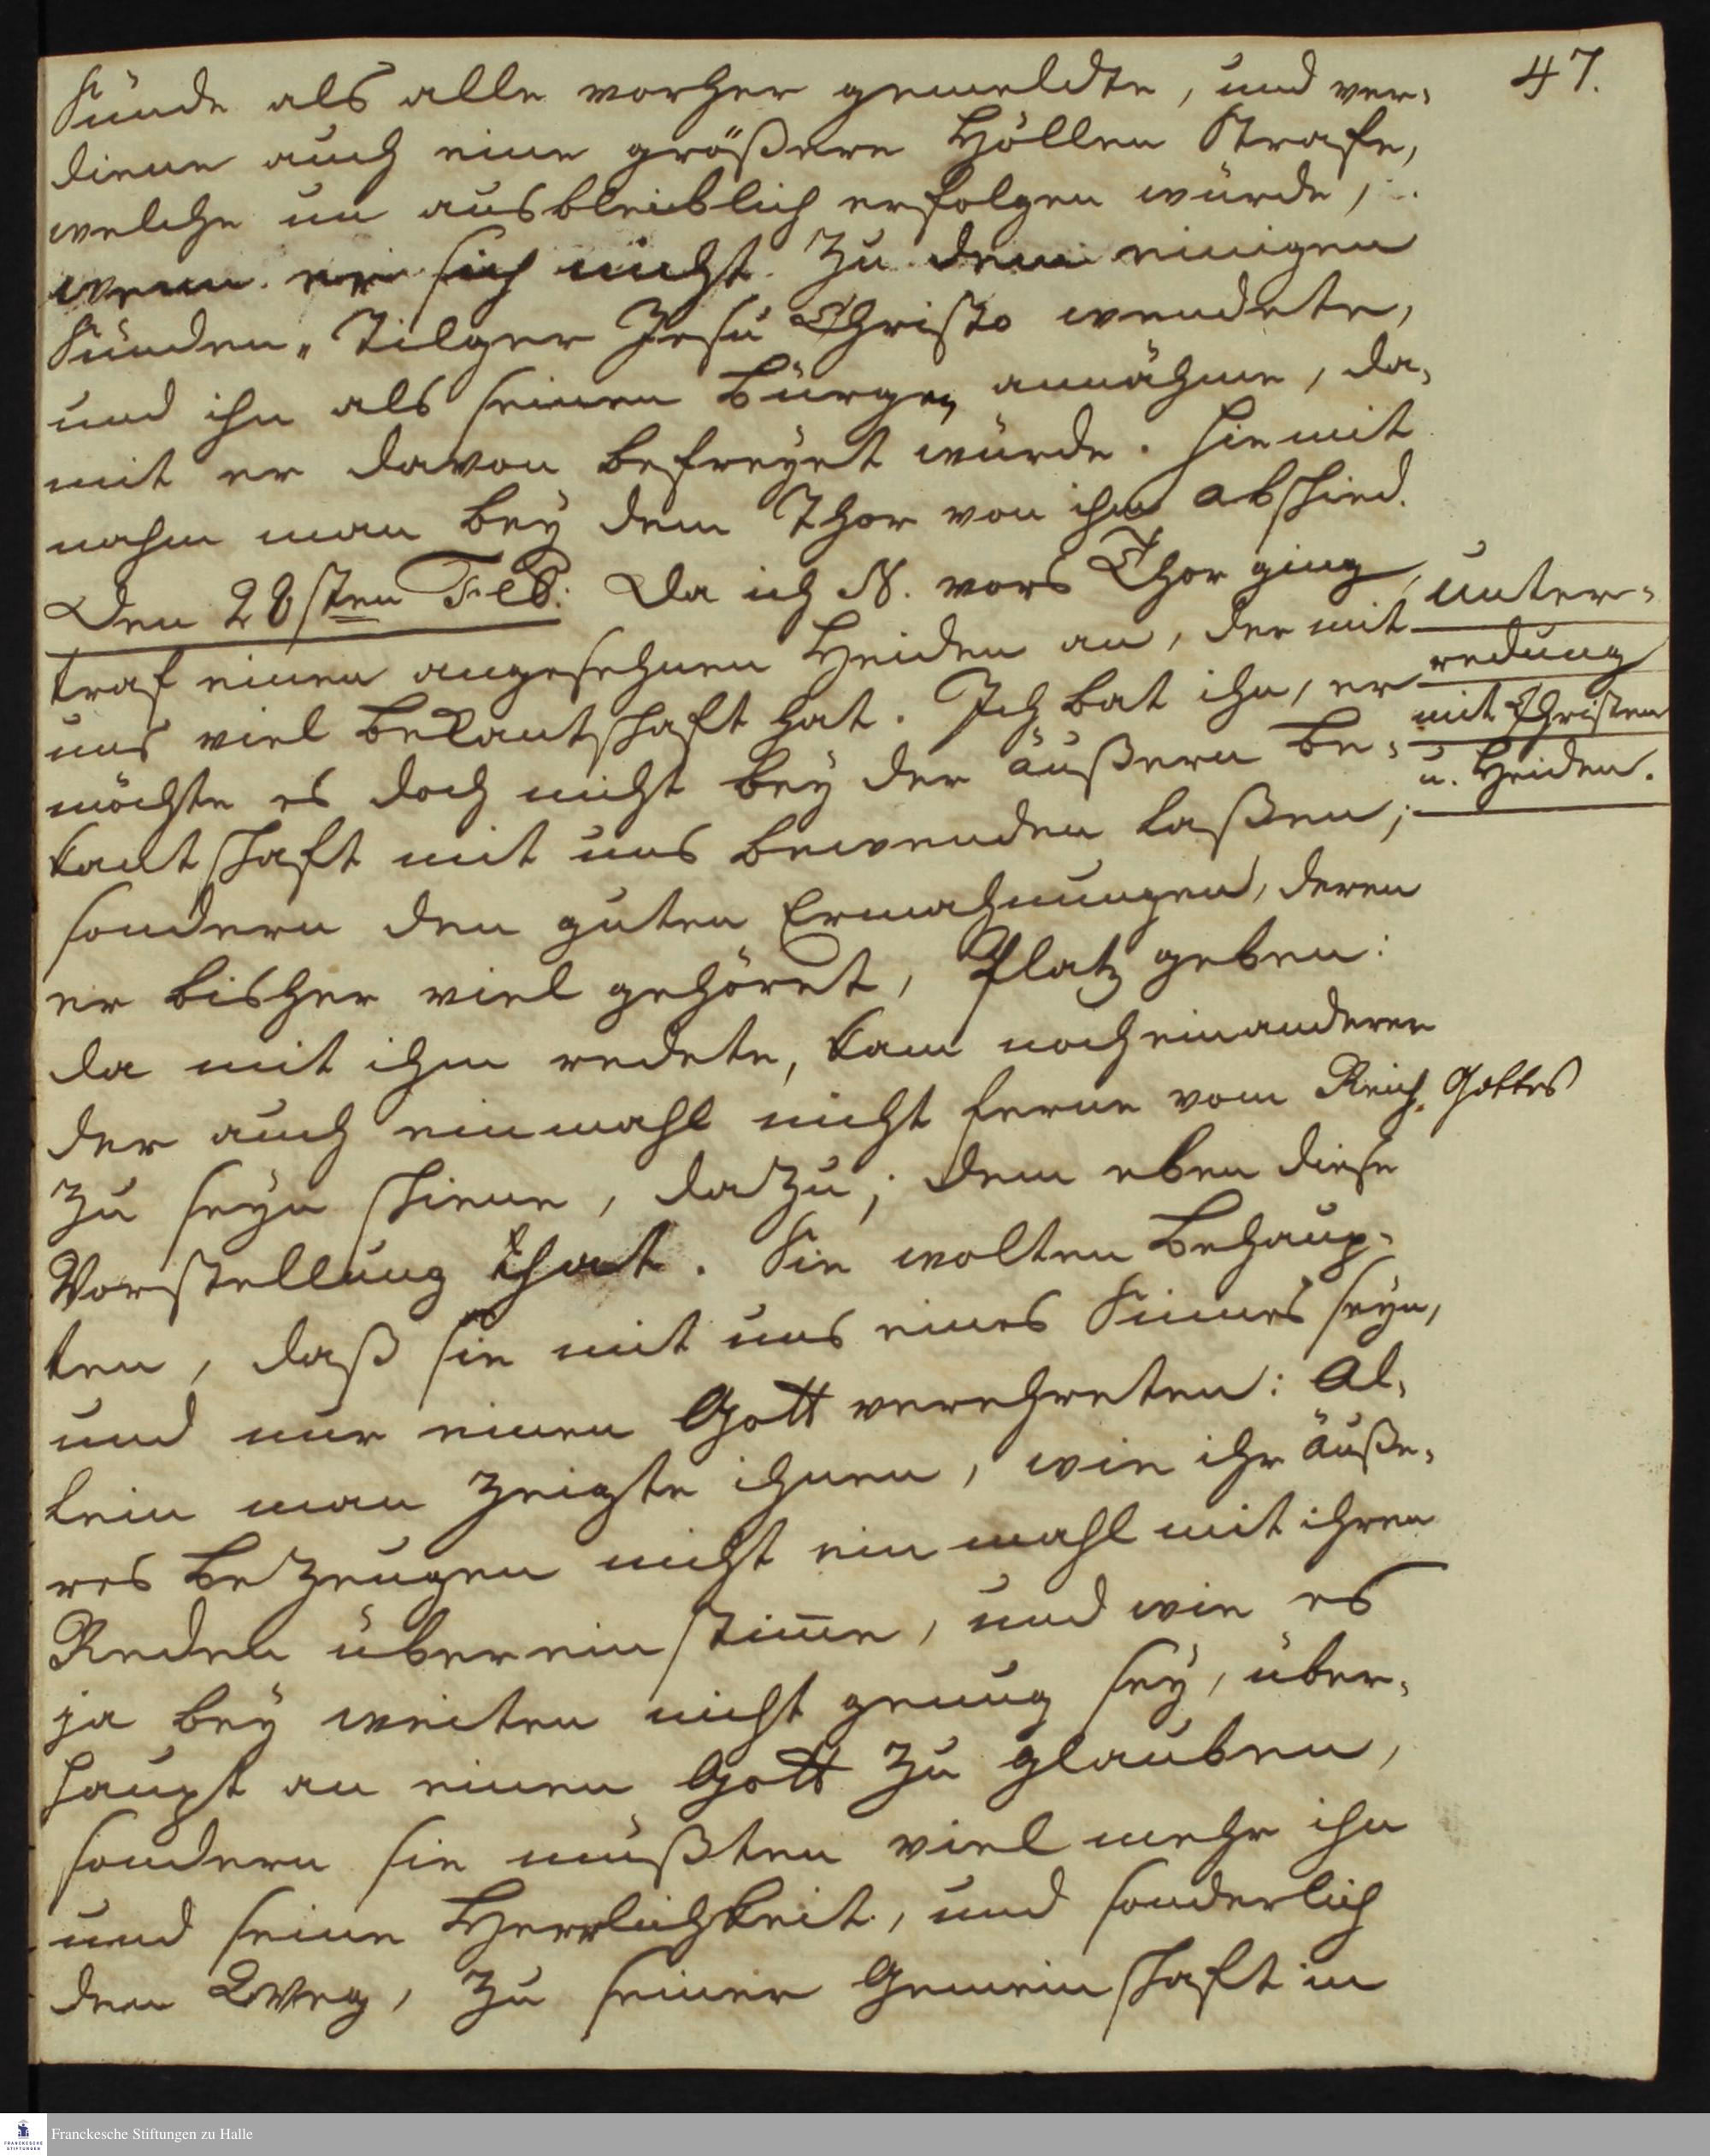 47.
Sünde als alle vorher gemeldte, und ver-
diene auch eine größere Höllen Strafe,
welche un ausbleiblich erfolgen würde,
wenn er sich nicht zu dem einigen
Sünden-Tilger Jesu Christo wendete,
und ihn als seinen Bürgen annähme, da-
mit er davon befreyet würde. Hiemit
nahm man bey dem Thor von ihm abschied.
Den 28sten Feb: Da ich N. vors Thor ging,
traf einen angesehnen Heiden an, der mit
uns viel bekantschaft hat. Ich bat ihn, er
möchte es doch nicht bey der äußern be-
kantschaft mit uns bewenden laßen;
sondern den guten Ermahnungen, deren
er bisher viel gehöret, Platz geben:
da mit ihm redete, kam noch ein anderer
der auch einmahl nicht ferne vom Reich Gottes
zu seyn schiene, dazu; dem eben diese
Vorstellung that. Sie wolten behaup-
ten, daß sie mit uns eines Sinnes seyn,
und nur einen Gott verehreten: Al-
lein man zeigte ihnen, wie ihr äuße-
res bezeugen nicht ein mahl mit ihren
Reden übereinstim̅e, und wie es
ja bey weiten nicht genug sey, über-
haupt an einen Gott zu glauben,
sondern sie müßten viel mehr ihn
und seine Herrlichkeit, und sonderlich
den Weg, zu seiner Gemeinschaft in
Unter-
redung
mit Christen
u. Heiden.
Franckesche Stiftungen zu Halle